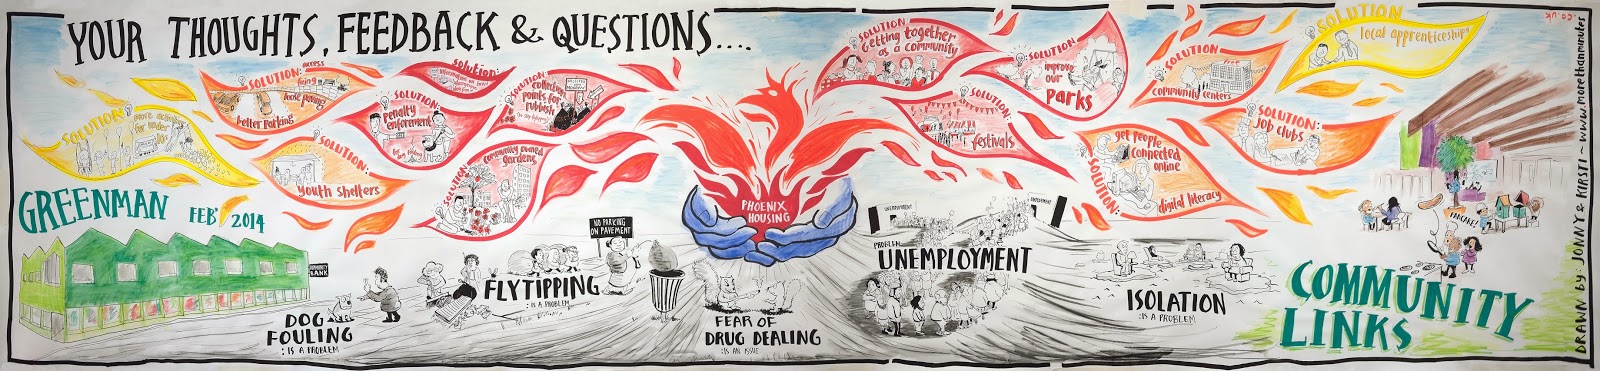 YOUR THOUGHTS, FEEDBACK & QUESTIONS....
SOLUTION:
more activities
for under
SOLUTION: access
fixing
loose paving!
better parking
solution:
SOLUTION:
penalty
enforment
SOLUTION:
collection
points for
rubbish
SOLUTION:
youth shelters
SOLUTION:
community owned
gardens
PHOENIX
HOUSING
SOLUTION:
Getting together
as a community
SOLUTION:
improve
our
parks
SOLUTION:
festivals
SOLUTION:
free
community centers
SOLUTION
local apprenticeships
SOLUTION:
JOB CLUBS
get people
connected
online
SOLUTION:
digital literacy
GREENMAN FEB' 2014
COMMUNITY
BANK
DOG
FOULING
: IS A PROBLEM
FLYTIPPING
: IS A PROBLEM
NO PARKING
ON PAVEMENT
FEAR OF
DRUG DEALING
: IS AN ISSUE
UNEMPLOYMENT
PROBLEM
UNEMPLOYMENT
ISOLATION
: IS A PROBLEM
PANCAKE!
COMMUNITY
LINKS
DRAWN BY: JONNY & KIRSTI ~ www.morethanminutes
.co.uk